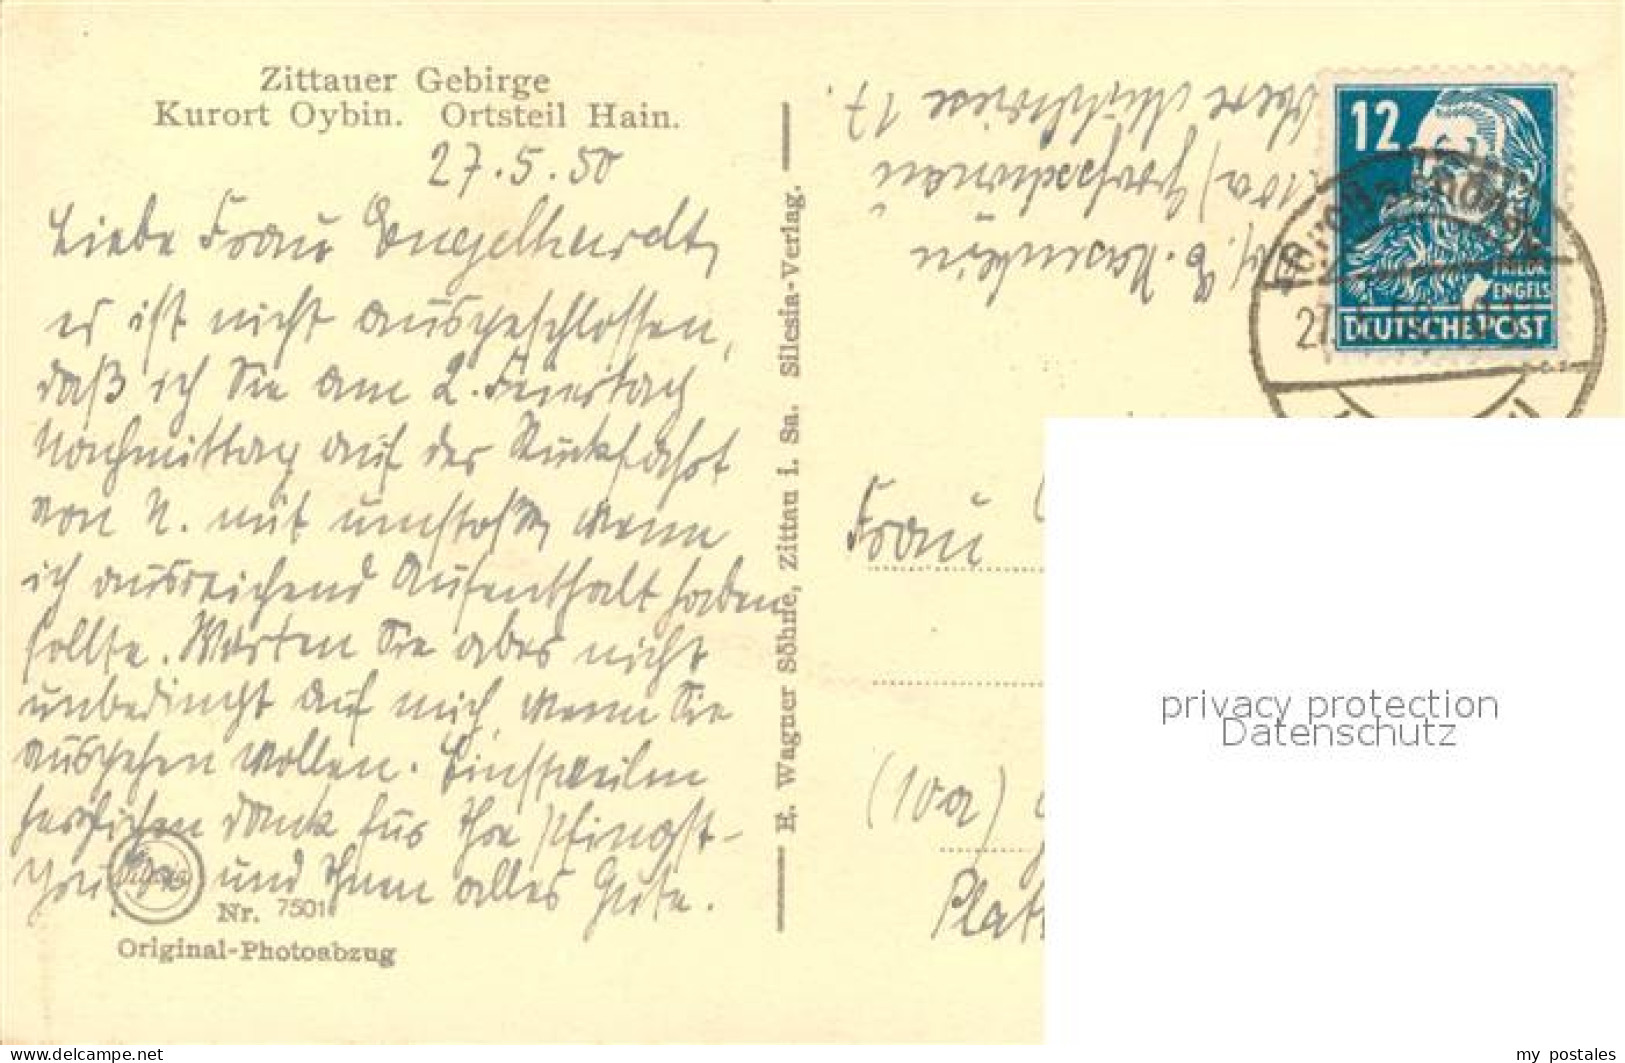 Zittauer Gebirge
Kurort Oybin. Ortsteil Hain.
27.5.50
Liebe Frau Engelhardt,
es ist nicht ausgeschlossen,
daß ich Sie am 2. Feiertag
Nachmittag auf der Rückfahrt
von N. mit wenn
ich ausreichend Aufenthalt haben
sollte. Warten Sie aber nicht
unbedingt auf mich, wenn Sie
ausgehen wollen. Einstweilen
herzlichen Dank für Ihre Pfingst-
und Ihnen alles Gute.
Nr. 7501
Original-Photoabzug
H. Wagner Söhne, Zittau i. Sa. Silesia-Verlag.
(10a)
17.
12
FRIEDR.
ENGELS
DEUTSCHE POST
27.
Frau
(10a)
privacy protection
Datenschutz
my_postales
www.delcampe.net